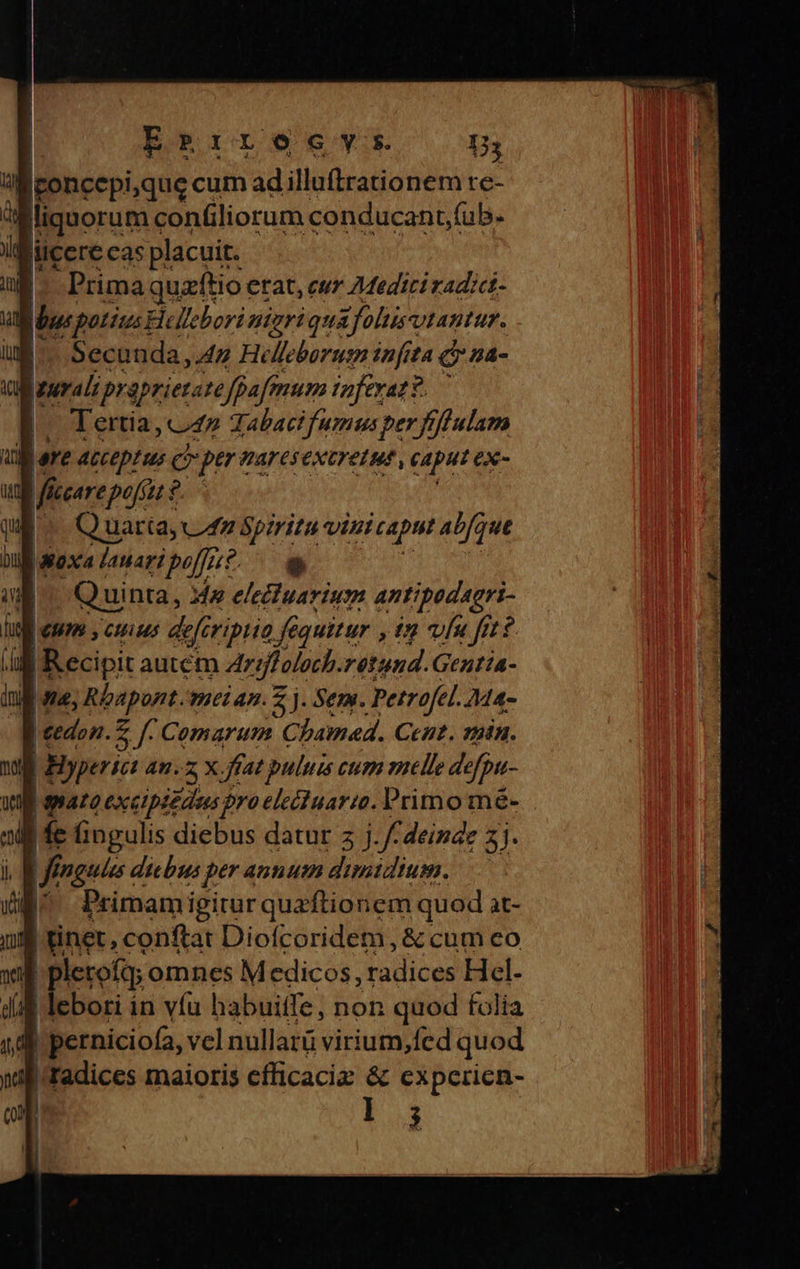 EPILOGVS.
concepi,quę cum ad illuſtrationem re-
liquorum conſiliorum conducant,ſub-
iicere eas placuit.
Prima quæſtio erat, cur Medici radici-
bus potius Hellebori nigri quā foliis vtantur.
Secunda, An Helleborum inſita & na-
turali proprietate ſpaſmum inferat?
Tertia, An Tabaci fumus per fiſtulam
ore acceptus & per nares excretus, caput ex-
ſiccare poſsit?
Quarta, An Spiritu vini caput abſque
noxa lauari poſſit?
Quinta, An electuarium antipodagri-
cum, cuius deſcriptio ſequitur, in vſu ſit?
Recipit autem Ariſtoloch.rotund.Gentia-
næ, Rhapont. mei an. ℥ j. Sem. Petroſel. Ma-
cedon. ℥ ſ. Comarum Chamæd. Cent. min.
Hyperici an. ʒ x. fiat puluis cum melle deſpu-
mato excipiēdus pro electuario. Primo mē-
ſe ſingulis diebus datur ʒ j. ſ. deinde ʒ j.
ſingulis diebus per annum dimidium.
Primam igitur quæſtionem quod at-
tinet, conſtat Dioſcoridem, & cum eo
pleroſq; omnes Medicos, radices Hel-
lebori in vſu habuiſſe, non quod folia
pernicioſa, vel nullarū virium,ſed quod
radices maioris efficaciæ & experien-
l 3